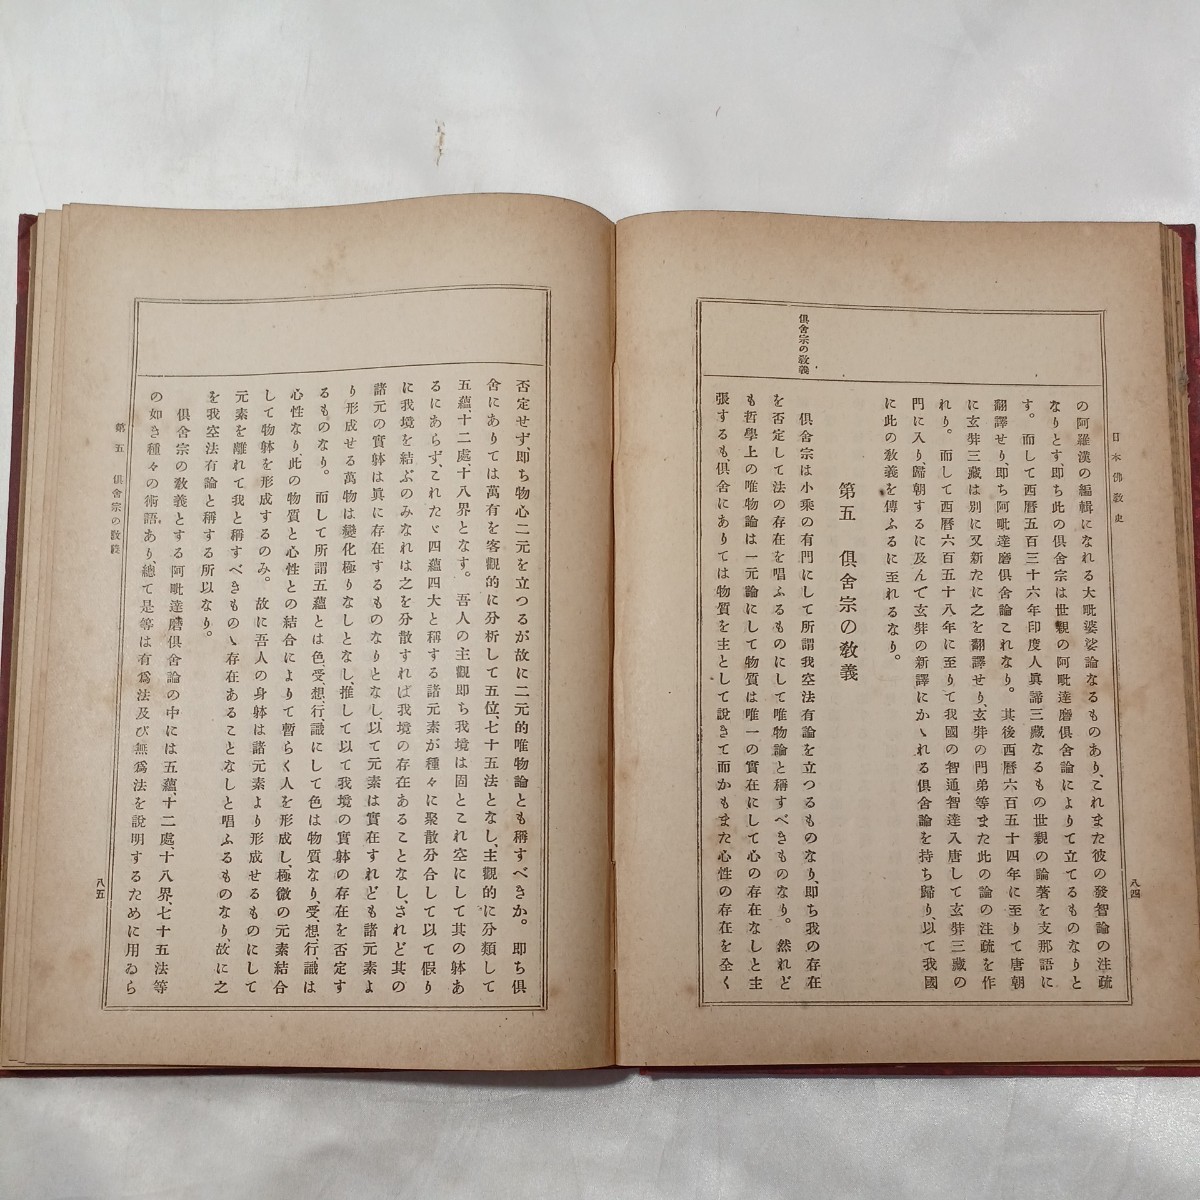 日本佛教史
八四
俱舍宗の教義
の阿羅漢の編輯になれる大毗婆娑論なるものあり、これまた彼の發智論の注疏
なりとす即ち此の俱舍宗は世親の阿毗達磨俱舍論によりて立てるものなりと
す。而して西曆五百三十六年印度人眞諦三藏なるもの世親の論著を支那語に
翻譯せり、即ち阿毗達磨俱舍論これなり。其後西曆六百五十四年に至りて唐朝
に玄弉三藏は別に又新たに之を翻譯せり、玄弉の門弟等また此の論の注疏を作
れり。而して西曆六百五十八年に至りて我國の智通、智達入唐して玄弉三藏の
門に入り、歸朝するに及んで玄弉の新譯にかゝれる俱舍論を持ち歸り、以て我國
に此の教義を傳ふるに至れるなり。
第五 俱舍宗の教義
俱舍宗は小乘の有門にして所謂我空法有論を立つるものなり、即ち我の存在
を否定して法の存在を唱ふるものにして唯物論と稱すべきものなり。然れど
も哲學上の唯物論は一元論にして物質は唯一の實在にして心の存在なしと主
張するも、俱舍にありては物質を主として說きて而かもまた心性の存在を全く
否定せず、即ち物心二元を立つるが故に二元的唯物論とも稱すべきか。即ち俱
舍にありては萬有を客觀的に分析して五位、七十五法となし、主觀的に分類して
五蘊、十二處、十八界となす。吾人の主觀即ち我境は固とこれ空にして其の躰あ
るにあらず、これたゞ四蘊四大と稱する諸元素が種々に聚散分合して以て假り
に我境を結ぶのみなれは之を分散すれば我境の存在あることなし、されど其の
諸元の實躰は眞に存在するものなりとなし、以て元素は實在すれども諸元素よ
り形成せる萬物は變化極りなしとなし、推して以て我境の實躰の存在を否定す
るものなり。而して所謂五蘊とは色、受、想、行、識にして色は物質なり、受、想、行、識は
心性なり、此の物質と心性との結合によりて暫らく人を形成し、極微の元素結合
して物躰を形成するのみ。故に吾人の身躰は諸元素より形成せるものにして
元素を離れて我と稱すべきものゝ存在あることなしと唱ふるものなり、故に之
を我空法有論と稱する所以なり。
俱舍宗の教義とする阿毗達磨俱舍論の中には五蘊、十二處、十八界、七十五法等
の如き種々の術語あり、總て是等は有爲法及び無爲法を說明するために用ゐら
第五 俱舍宗の教義
八五